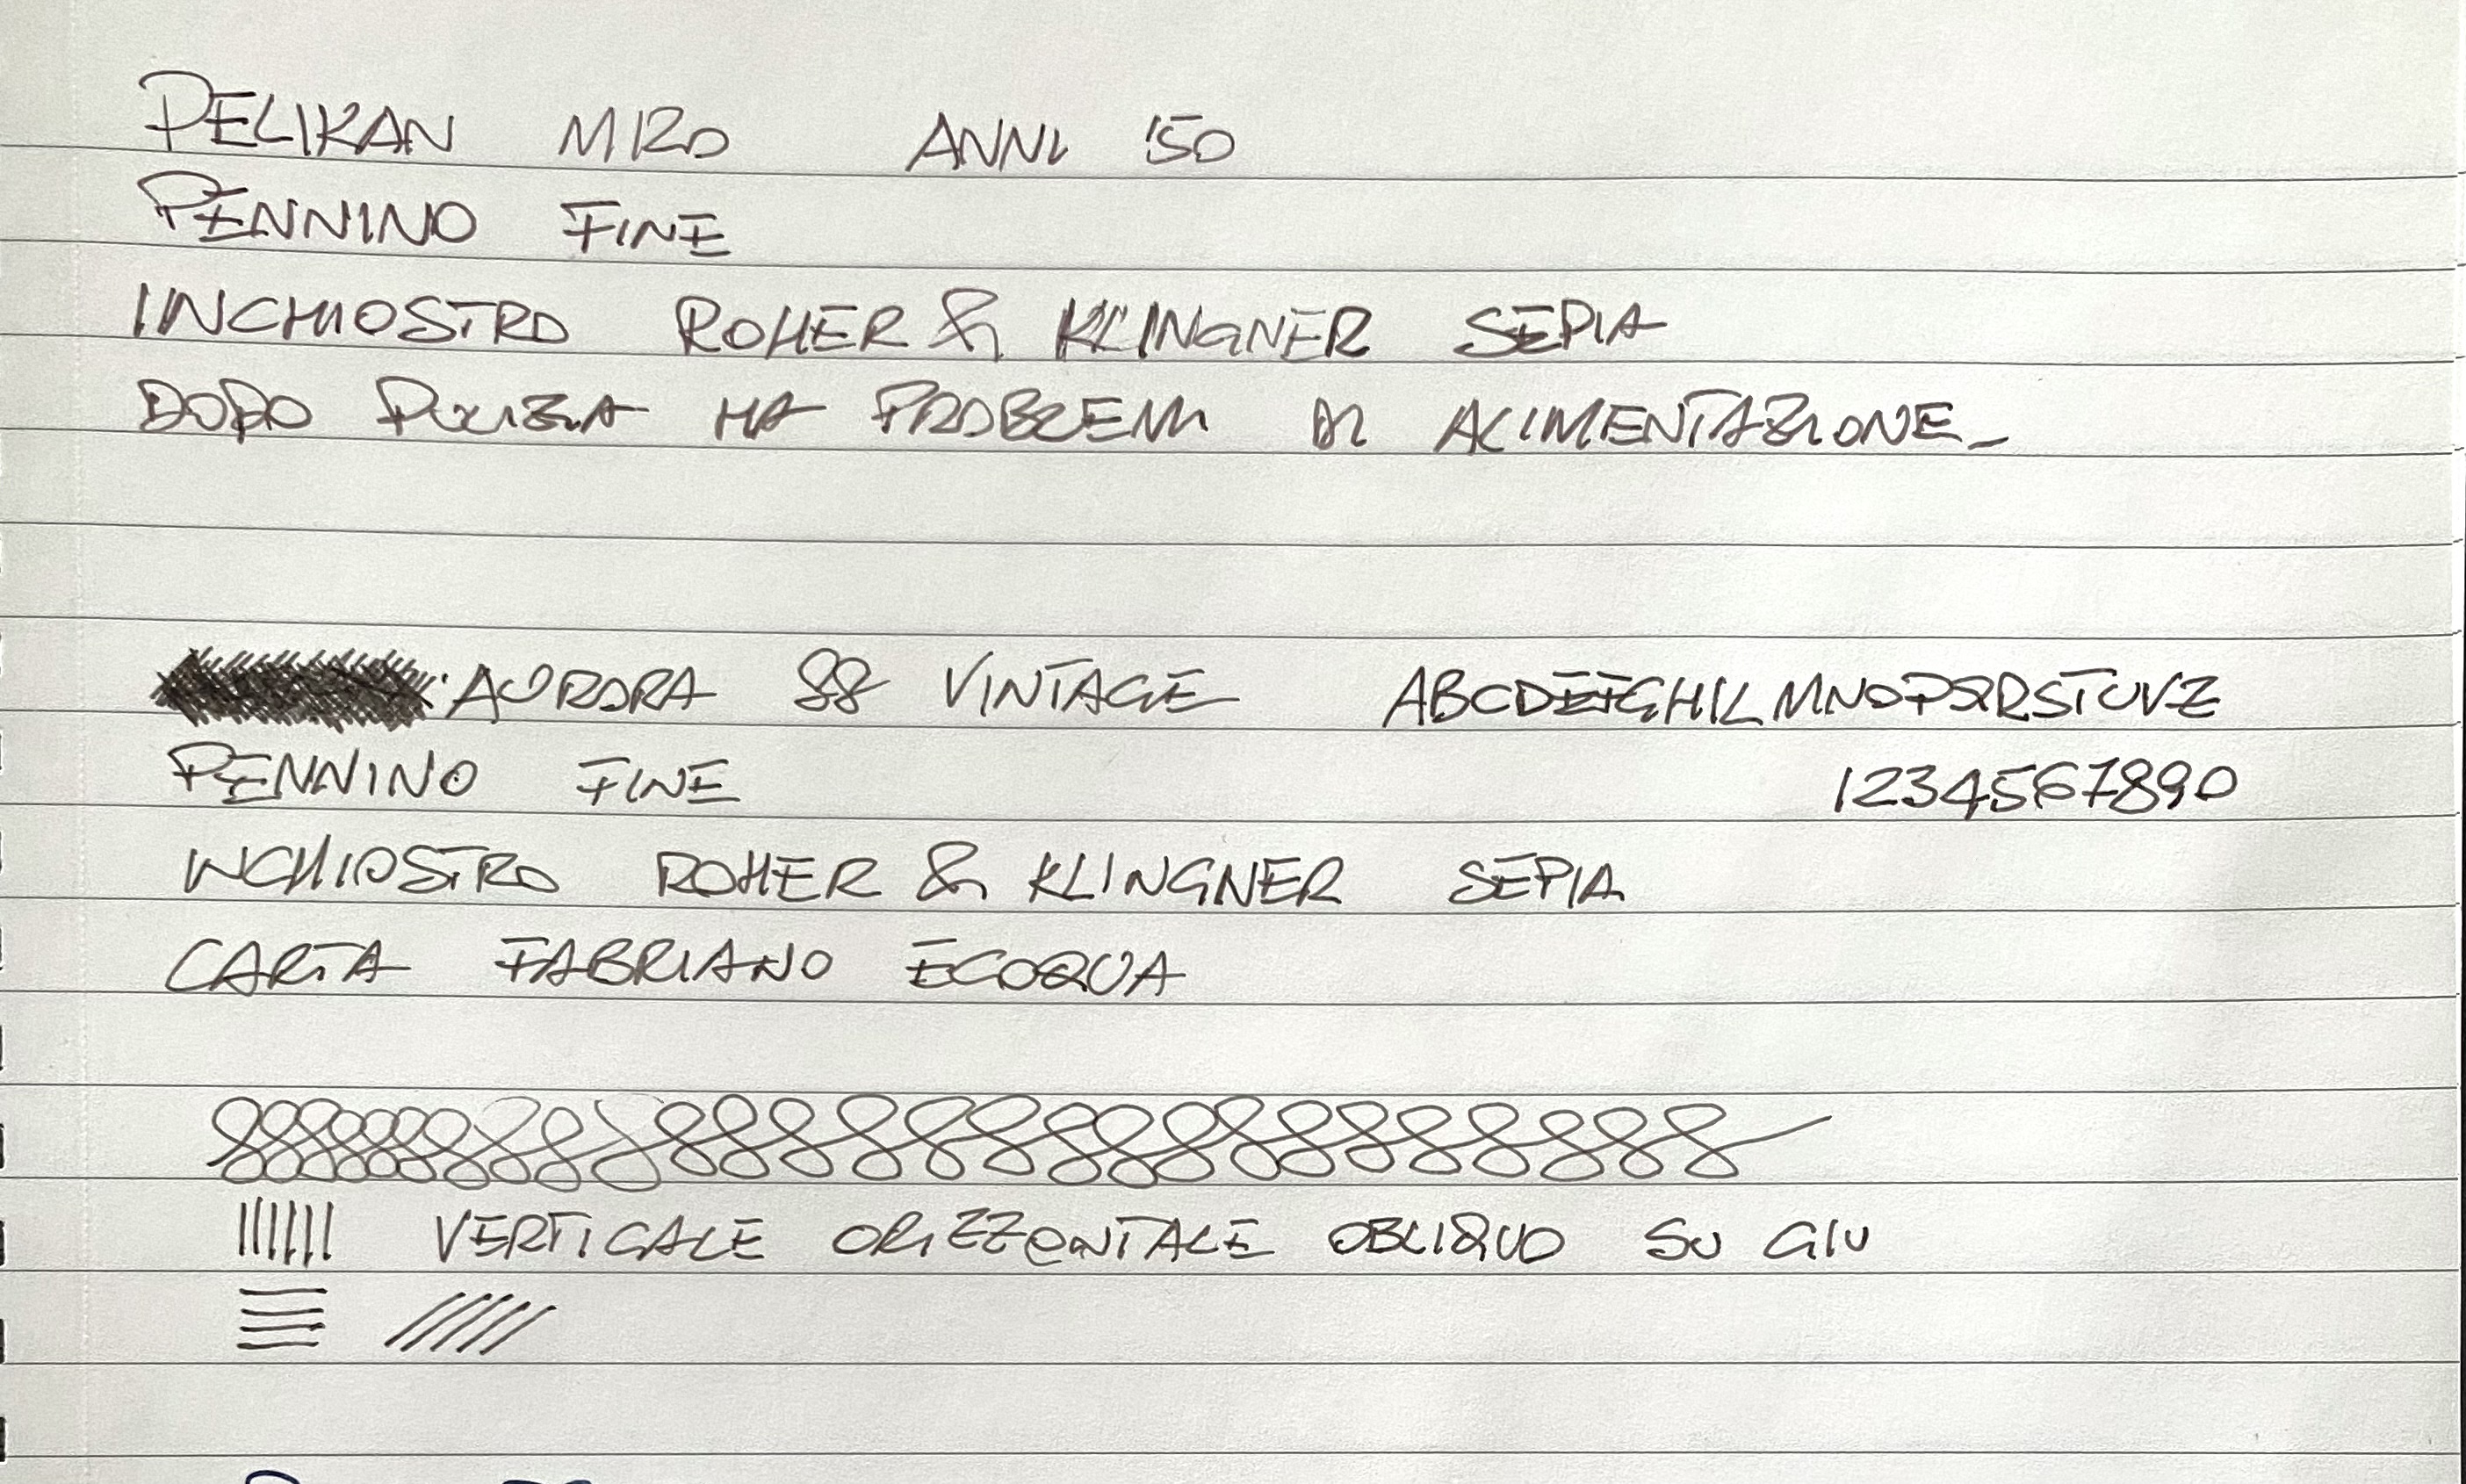 PELIKAN M120 ANNI '50
PENNINO FINE
INCHIOSTRO ROHER & KLINGNER SEPIA
DOPO PULIZIA HA PROBLEMI DI ALIMENTAZIONE_
AURORA 88 VINTAGE ABCDEFGHILMNOPQRSTUVZ
PENNINO FINE 1234567890
INCHIOSTRO ROHER & KLINGNER SEPIA
CARTA FABRIANO ECOQUA
VERTICALE ORIZZONTALE OBLIQUO SU GIU